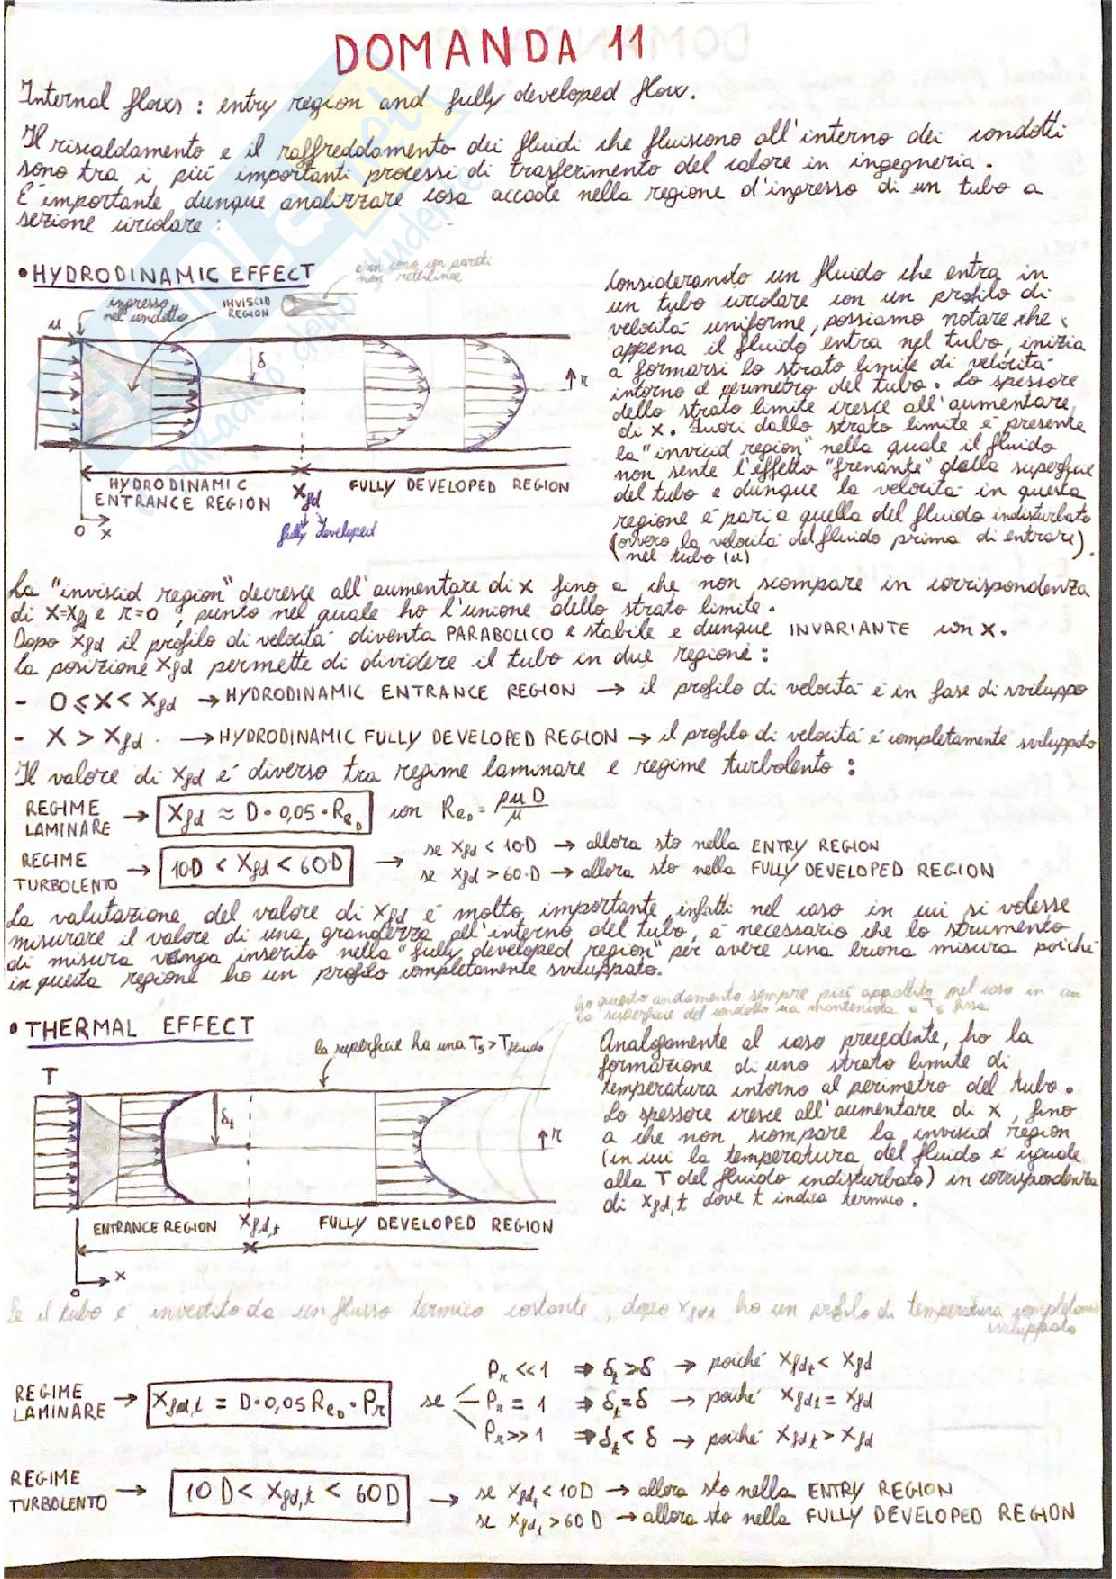 DOMANDA 11
Internal flows : entry region and fully developed flow.
Il riscaldamento e il raffreddamento dei fluidi che fluiscono all'interno dei condotti
sono tra i più importanti processi di trasferimento del calore in ingegneria.
E' importante dunque analizzare cosa accade nella regione d'ingresso di un tubo a
sezione circolare :
• HYDRODINAMIC EFFECT
ingresso
nel condotto
INVISCID
REGION
con pareti
non rettilinee
u
δ
r
HYDRODINAMIC
ENTRANCE REGION
Xfd
FULLY DEVELOPED REGION
fully developed
0 x
Considerando un fluido che entra in
un tubo circolare con un profilo di
velocità uniforme, possiamo notare che
appena il fluido entra nel tubo, inizia
a formarsi lo strato limite di velocità
intorno al perimetro del tubo. Lo spessore
dello strato limite cresce all'aumentare
di x. Fuori dallo strato limite è presente
la "inviscid region" nella quale il fluido
non sente l'effetto "frenante" della superficie
del tubo e dunque la velocità in questa
regione è pari a quella del fluido indisturbato
(ovvero la velocità del fluido prima di entrare
nel tubo (u)).
La "inviscid region" decresce all'aumentare di x fino a che non scompare in corrispondenza
di x=xfd e r=0, punto nel quale ho l'unione dello strato limite.
Dopo xfd il profilo di velocità diventa PARABOLICO e stabile e dunque INVARIANTE con x.
La posizione xfd permette di dividere il tubo in due regioni :
- 0 ⩽ x < xfd → HYDRODINAMIC ENTRANCE REGION → il profilo di velocità è in fase di sviluppo
- X > xfd . → HYDRODINAMIC FULLY DEVELOPED REGION → il profilo di velocità è completamente sviluppato
Il valore di xfd è diverso tra regime laminare e regime turbolento :
REGIME
LAMINARE → Xfd ≈ D · 0,05 · ReD con ReD = ρuD/μ
REGIME
TURBOLENTO → 10·D < xfd < 60·D → se xfd < 10·D → allora sto nella ENTRY REGION
se xfd > 60·D → allora sto nella FULLY DEVELOPED REGION
La valutazione del valore di xfd è molto importante, infatti nel caso in cui si volesse
misurare il valore di una grandezza all'interno del tubo, è necessario che lo strumento
di misura venga inserito nella "fully developed region" per avere una buona misura poiché
in questa regione ho un profilo completamente sviluppato.
ho questo andamento sempre più appiattito nel caso in cui
la superficie del condotto sia mantenuta a Ts fissa
• THERMAL EFFECT
la superficie ha una Ts > Tfluido
T
δt
r
ENTRANCE REGION
Xfd,t
FULLY DEVELOPED REGION
0 x
Analogamente al caso precedente, ho la
formazione di uno strato limite di
temperatura intorno al perimetro del tubo.
Lo spessore cresce all'aumentare di x, fino
a che non scompare la inviscid region
(in cui la temperatura del fluido è uguale
alla T del fluido indisturbato) in corrispondenza
di xfd,t dove t indica termico.
Se il tubo è investito da un flusso termico costante, dopo xfd,t ho un profilo di temperatura completamente
sviluppato
REGIME
LAMINARE → Xfd,t = D·0,05 ReD · Pr se
Pr << 1 ⇒ δt > δ → poiché xfdt < xfd
Pr = 1 ⇒ δt = δ → poiché xfdt = xfd
Pr >> 1 ⇒ δt < δ → poiché xfdt > xfd
REGIME
TURBOLENTO → 10 D < xfd,t < 60D → se xfdt < 10D → allora sto nella ENTRY REGION
se xfdt > 60 D → allora sto nella FULLY DEVELOPED REGION